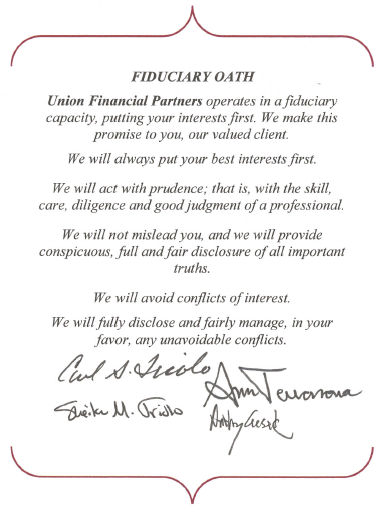 FIDUCIARY OATH
Union Financial Partners operates in a fiduciary
capacity, putting your interests first. We make this
promise to you, our valued client.
We will always put your best interests first.
We will act with prudence; that is, with the skill,
care, diligence and good judgment of a professional.
We will not mislead you, and we will provide
conspicuous, full and fair disclosure of all important
truths.
We will avoid conflicts of interest.
We will fully disclose and fairly manage, in your
favor, any unavoidable conflicts.
Carl S. Triolo
Ann Terranova
M. Triolo